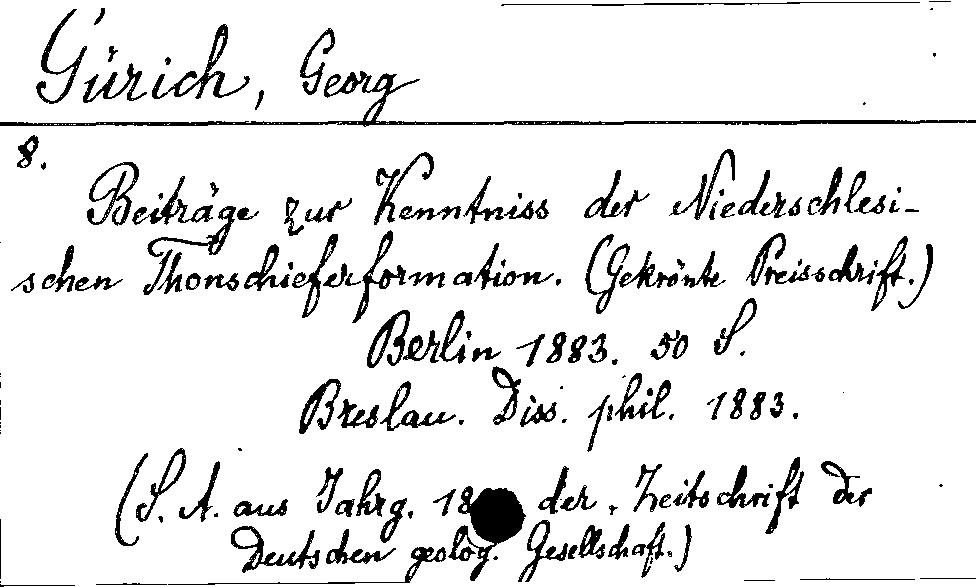 Gürich, Georg
8.
Beiträge zur Kenntniss der Niederschlesi-
schen Thonschieferformation. (Gekrönte Preisschrift.)
Berlin 1883. 50 S.
Breslau. Diss. phil. 1883.
(S. A. aus Jahrg. der Zeitschrift der
Deutschen geolog. Gesellschaft.)